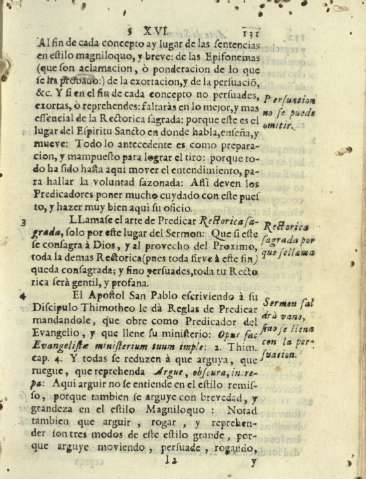 § XVI 131
Al fin de cada concepto ay lugar de las sentencias
en estilo magniloquo, y breve: de las Epifonemas
(que son aclamacion, ò ponderacion de lo que
se ha provado:) de la exortacion, y de la persuaciõ,
&c. Y si en el fin de cada concepto no persuades,
exortas, ò reprehendes: faltaràs en lo mejor, y mas
essencial de la Rectorica sagrada: porque este es el
lugar del Espiritu Sancto en donde habla, enseña, y
mueve: Todo lo antecedente es como prepara-
cion, y mampuesto para lograr el tiro: porque to-
do ha sido hasta aqui mover el entendimiento, pa-
ra hallar la voluntad sazonada: Assi deven los
Predicadores poner mucho cuydado con este pues
to, y hazer muy bien aqui su oficio.
Persuacion
no se puede
omitir.
3 LLamase el arte de Predicar Rectorica sa-
grada, solo por este lugar del Sermon: Que si este
se consagra à Dios, y al provecho del Proximo,
toda la demas Rectorica (pues toda sirve à este fin)
queda consagrada; y sino persuades, toda tu Recto
rica serà gentil, y profana.
Rectorica
sagrada por
que se llama
4 El Apostol San Pablo escriviendo à su
Discipulo Thimotheo le dà Reglas de Predicar
mandandole, que obre como Predicador del
Evangelio, y que llene su ministerio: Opus fac
Evangelistæ ministerium tuum imple: 2. Thim.
cap. 4. Y todas se reduzen à que arguya, que
ruegue, que reprehenda Argue, obsecra, in re-
pa: Aqui arguir no se entiende en el estilo remis-
so, porque tambien se arguye con brevedad, y
grandeza en el estilo Magniloquo: Notad
tambien que arguir, rogar, y reprehen-
der son tres modos de este estilo grande, por-
que arguye moviendo, persuade, rogando,
Sermon sal
drà vano,
sino se llena
con la per-
suasion.
I2 y